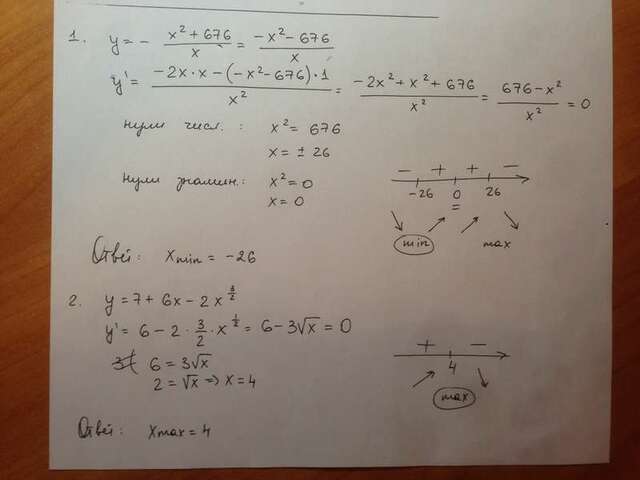 1. y = - x² + 676 / x = -x² - 676 / x
y' = -2x·x - (-x² - 676)·1 / x² = -2x² + x² + 676 / x² = 676 - x² / x² = 0
нули числ.: x² = 676
x = ± 26
нули знамен.: x² = 0
x = 0
- + + -
-26 0 26
=
min max
Ответ: xmin = -26
2. y = 7 + 6x - 2x^(3/2)
y' = 6 - 2 · 3/2 · x^(1/2) = 6 - 3√x = 0
6 = 3√x
2 = √x => x = 4
+ -
4
max
Ответ: xmax = 4